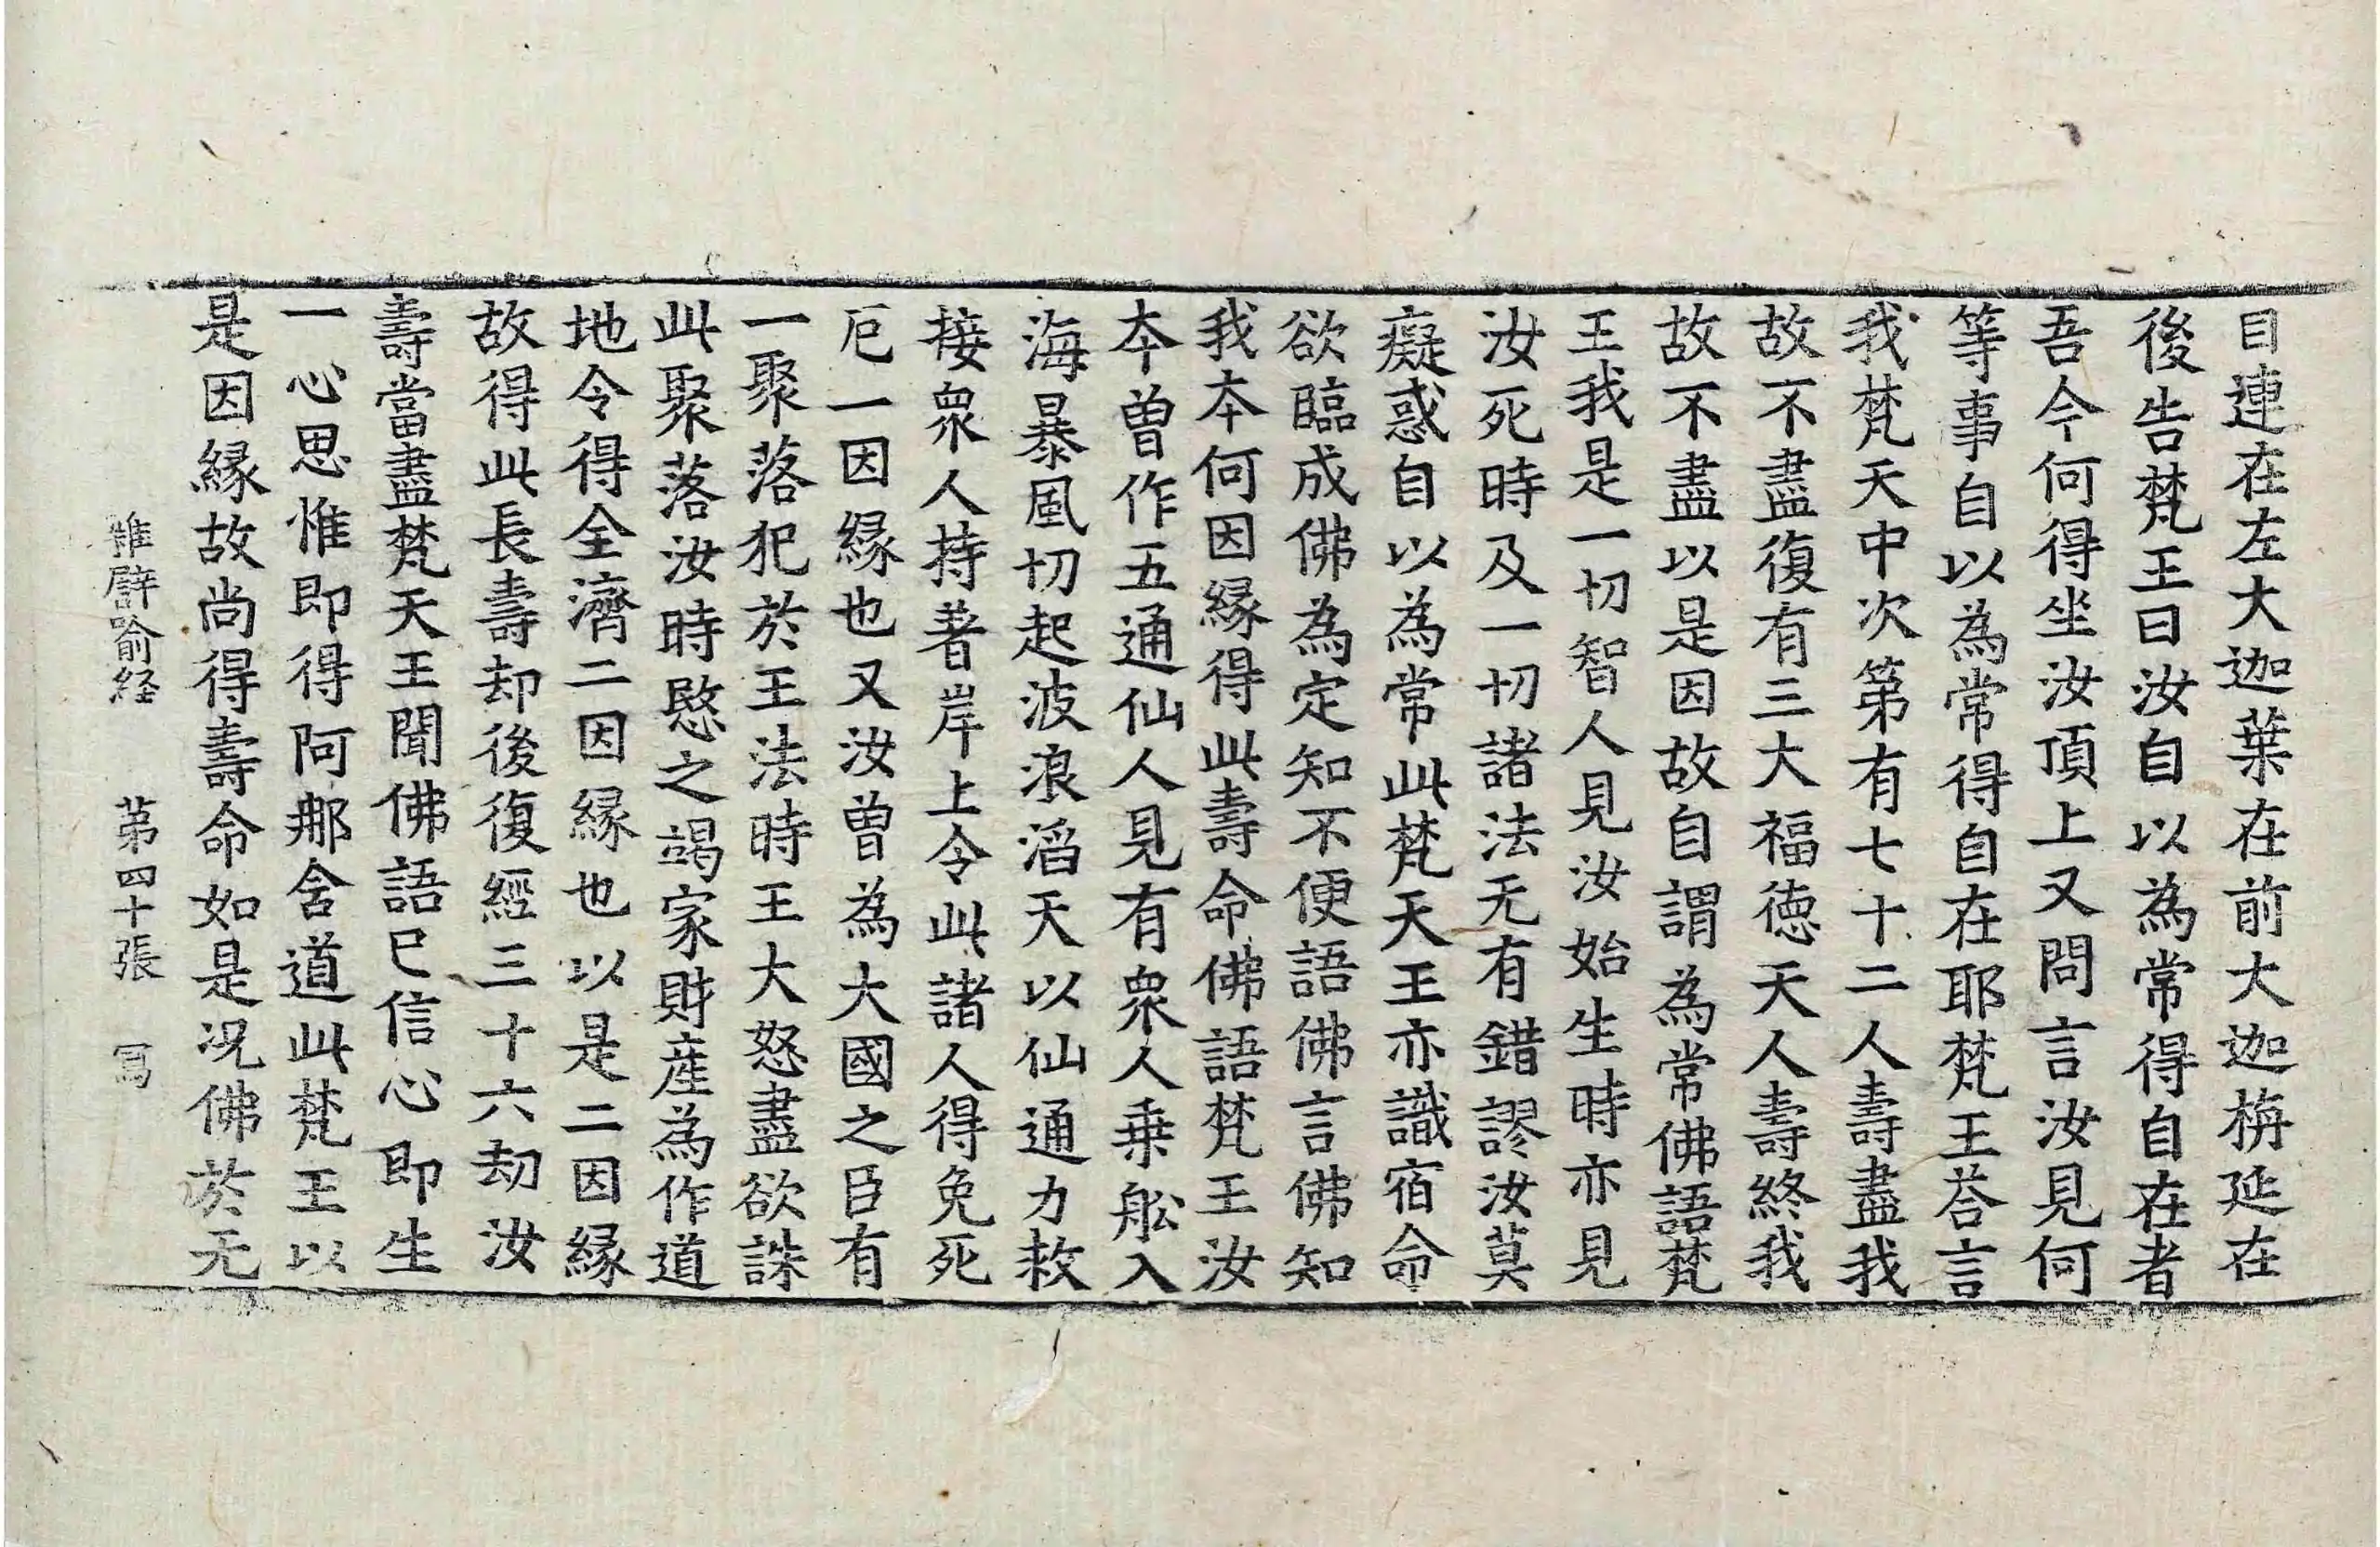 目連在左大迦葉在前大迦栴延在
後告梵王曰汝自以為常得自在者
吾今何得坐汝頂上又問言汝見何
等事自以為常得自在耶梵王荅言
我梵天中次第有七十二人壽盡我
故不盡復有三大福德天人壽終我
故不盡以是因故自謂為常佛語梵
王我是一切智人見汝始生時亦見
汝死時及一切諸法无有錯謬汝莫
癡惑自以為常此梵天王亦識宿命
欲臨成佛為定知不便語佛言佛知
我本何因緣得此壽命佛語梵王汝
本曾作五通仙人見有衆人乗舩入
海暴風切起波浪滔天以仙通力救
接衆人持著岸上令此諸人得免死
厄一因緣也又汝曾為大國之臣有
一聚落犯於王法時王大怒盡欲誅
此聚落汝時愍之竭家財産為作道
地令得全濟二因緣也以是二因緣
故得此長壽却後復經三十六劫汝
壽當盡梵天王聞佛語已信心即生
一心思惟即得阿那含道此梵王以
是因緣故尚得壽命如是況佛於无
雜譬喻経 第四十張 冩